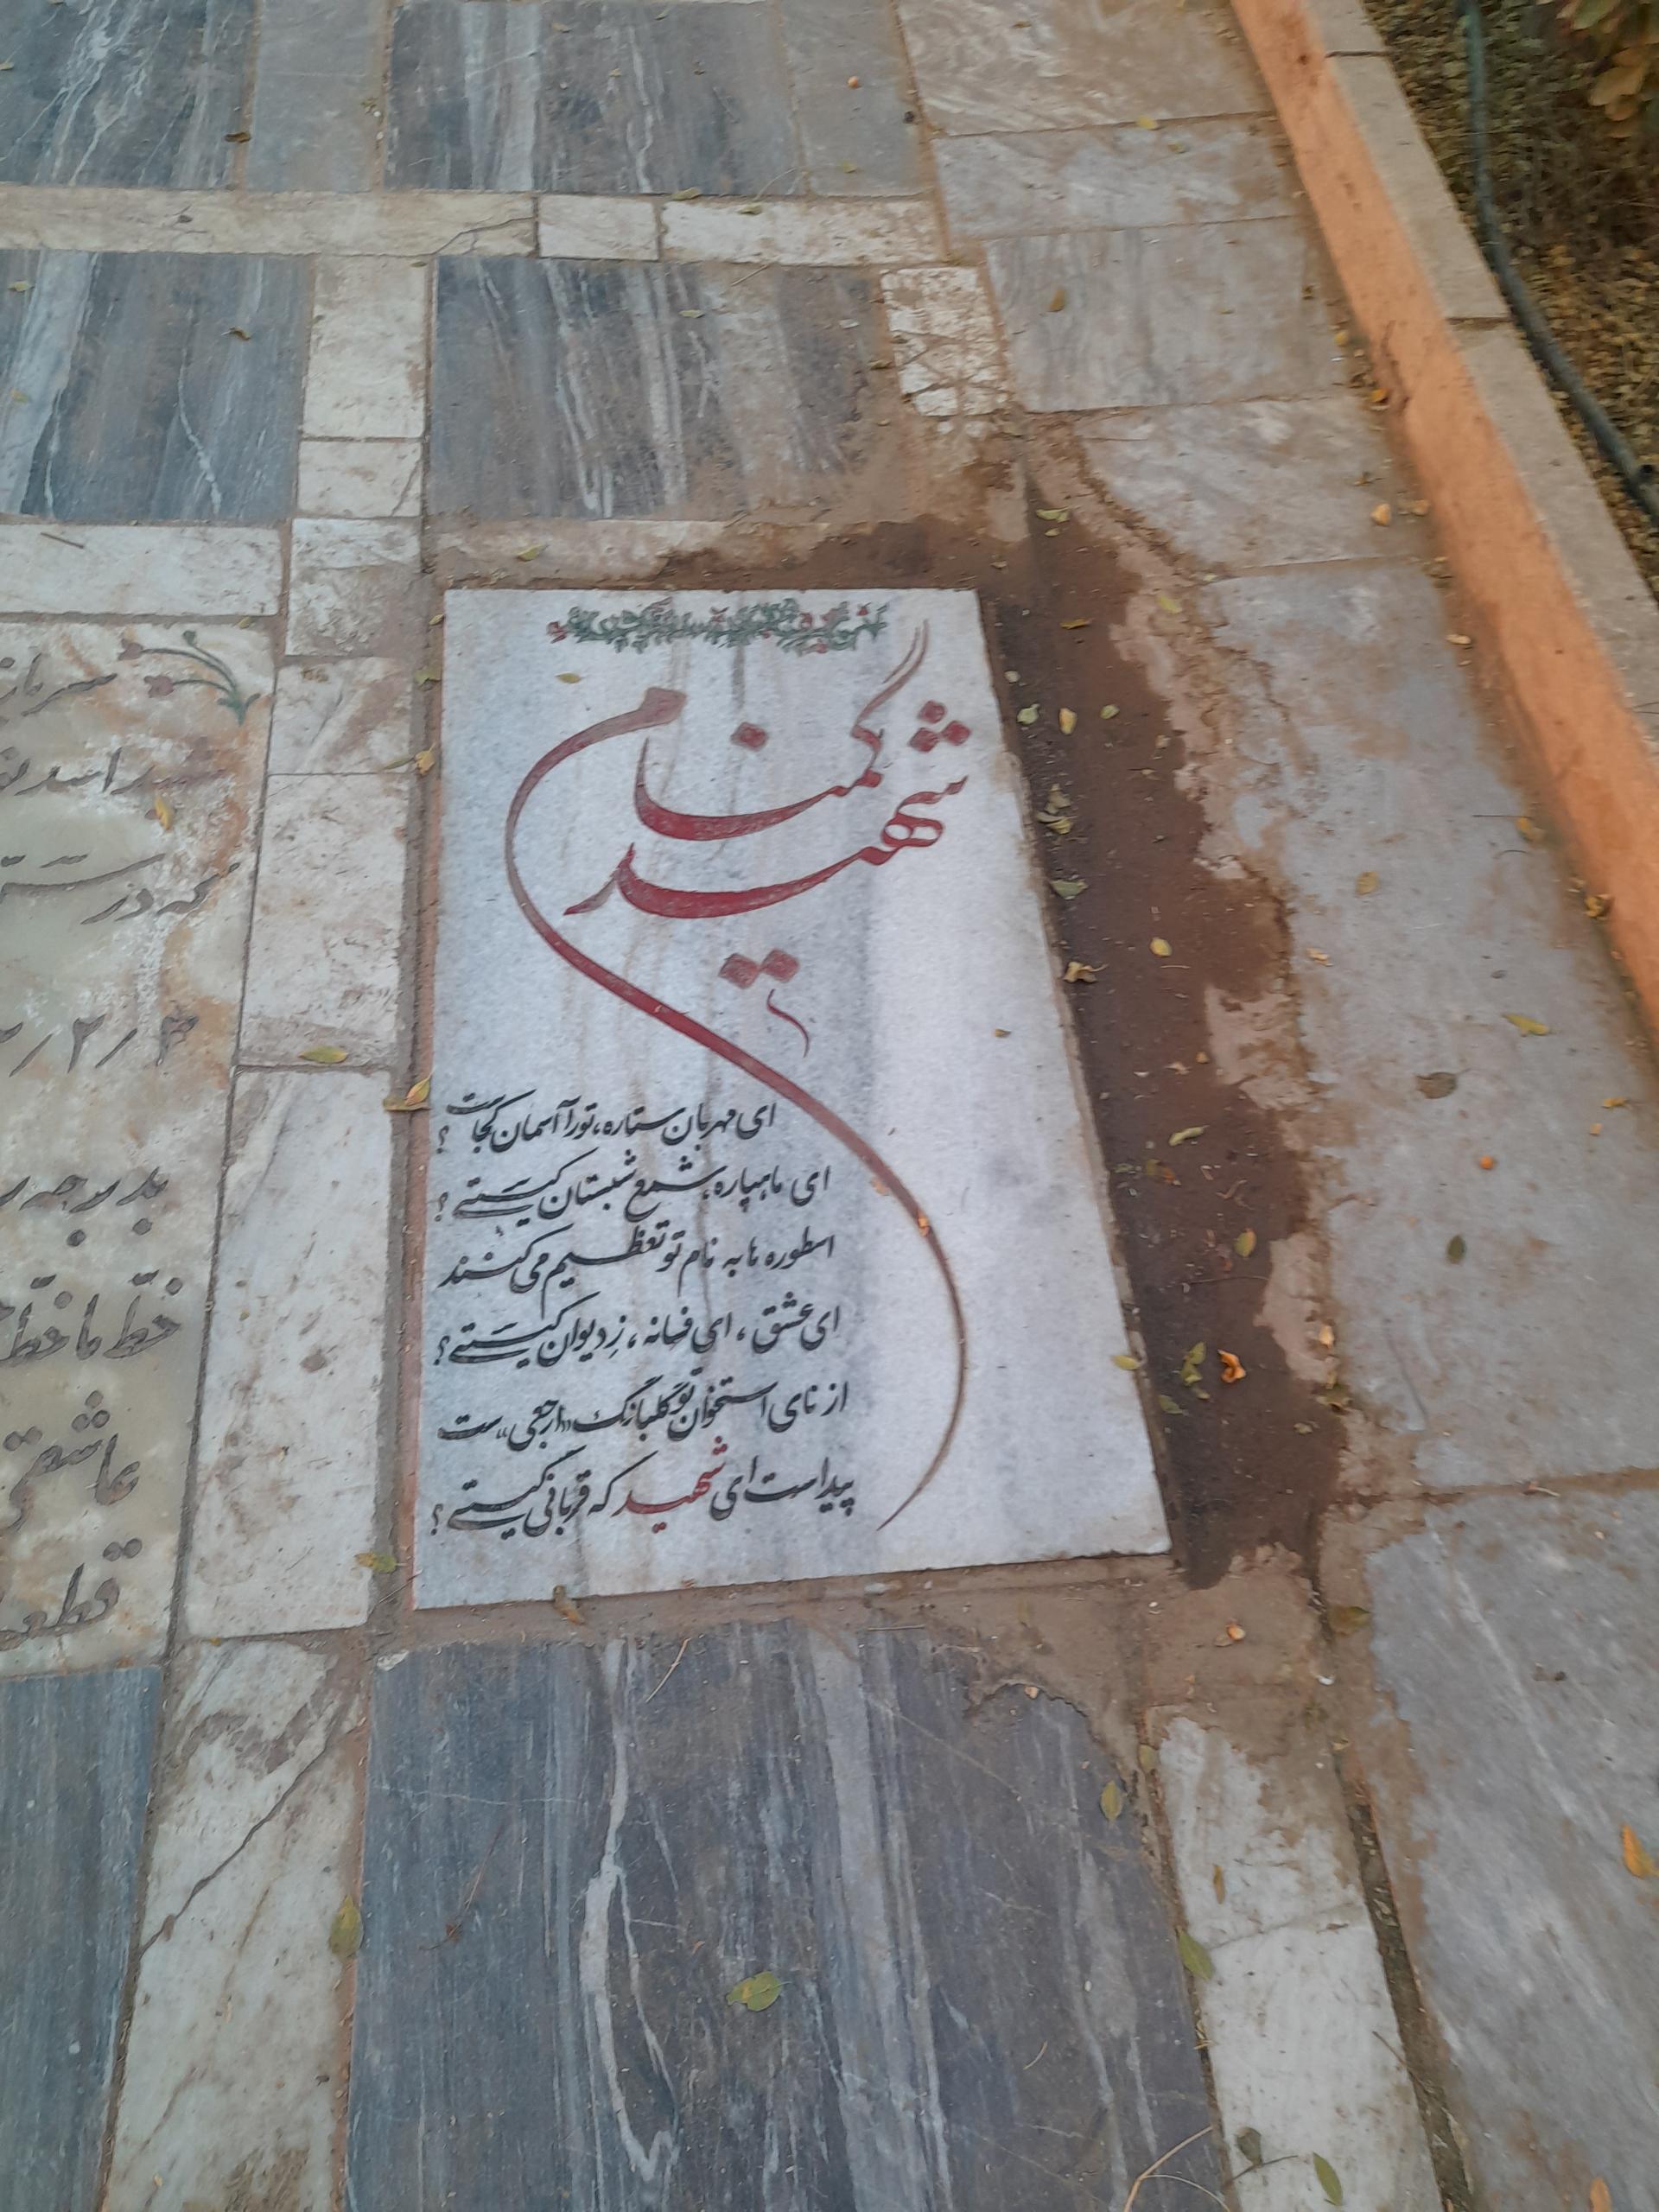 شهید گمنام
ای مهربان ستاره، تو را آسمان کجاست؟
ای ماهپاره، شمع شبستان کیستی؟
اسطوره ها به نام تو تعظیم می کنند
ای عشق، ای فسانه، ز دیوان کیستی؟
از نای استخوان تو گلبانگ «ارجعی» ست
پیداست ای شهید که قربانی کیستی؟
سرباز
که در
بدرجه ر
خط ما خط
عاشقی
قطعه